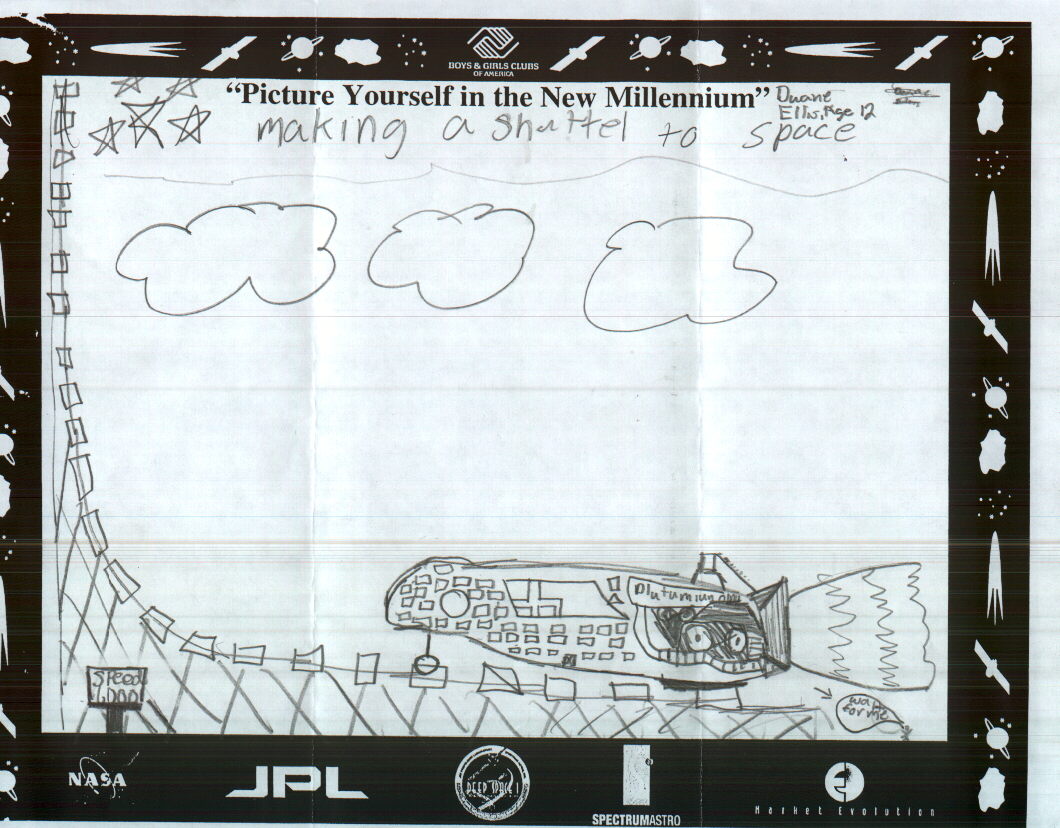 BOYS & GIRLS CLUBS
OF AMERICA
"Picture Yourself in the New Millennium"
Duane
Ellis, Age 12
making a shuttel to space
Speed
1,000
wait
for me
NASA
JPL
DEEP SPACE 1
SPECTRUMASTRO
Market Evolution